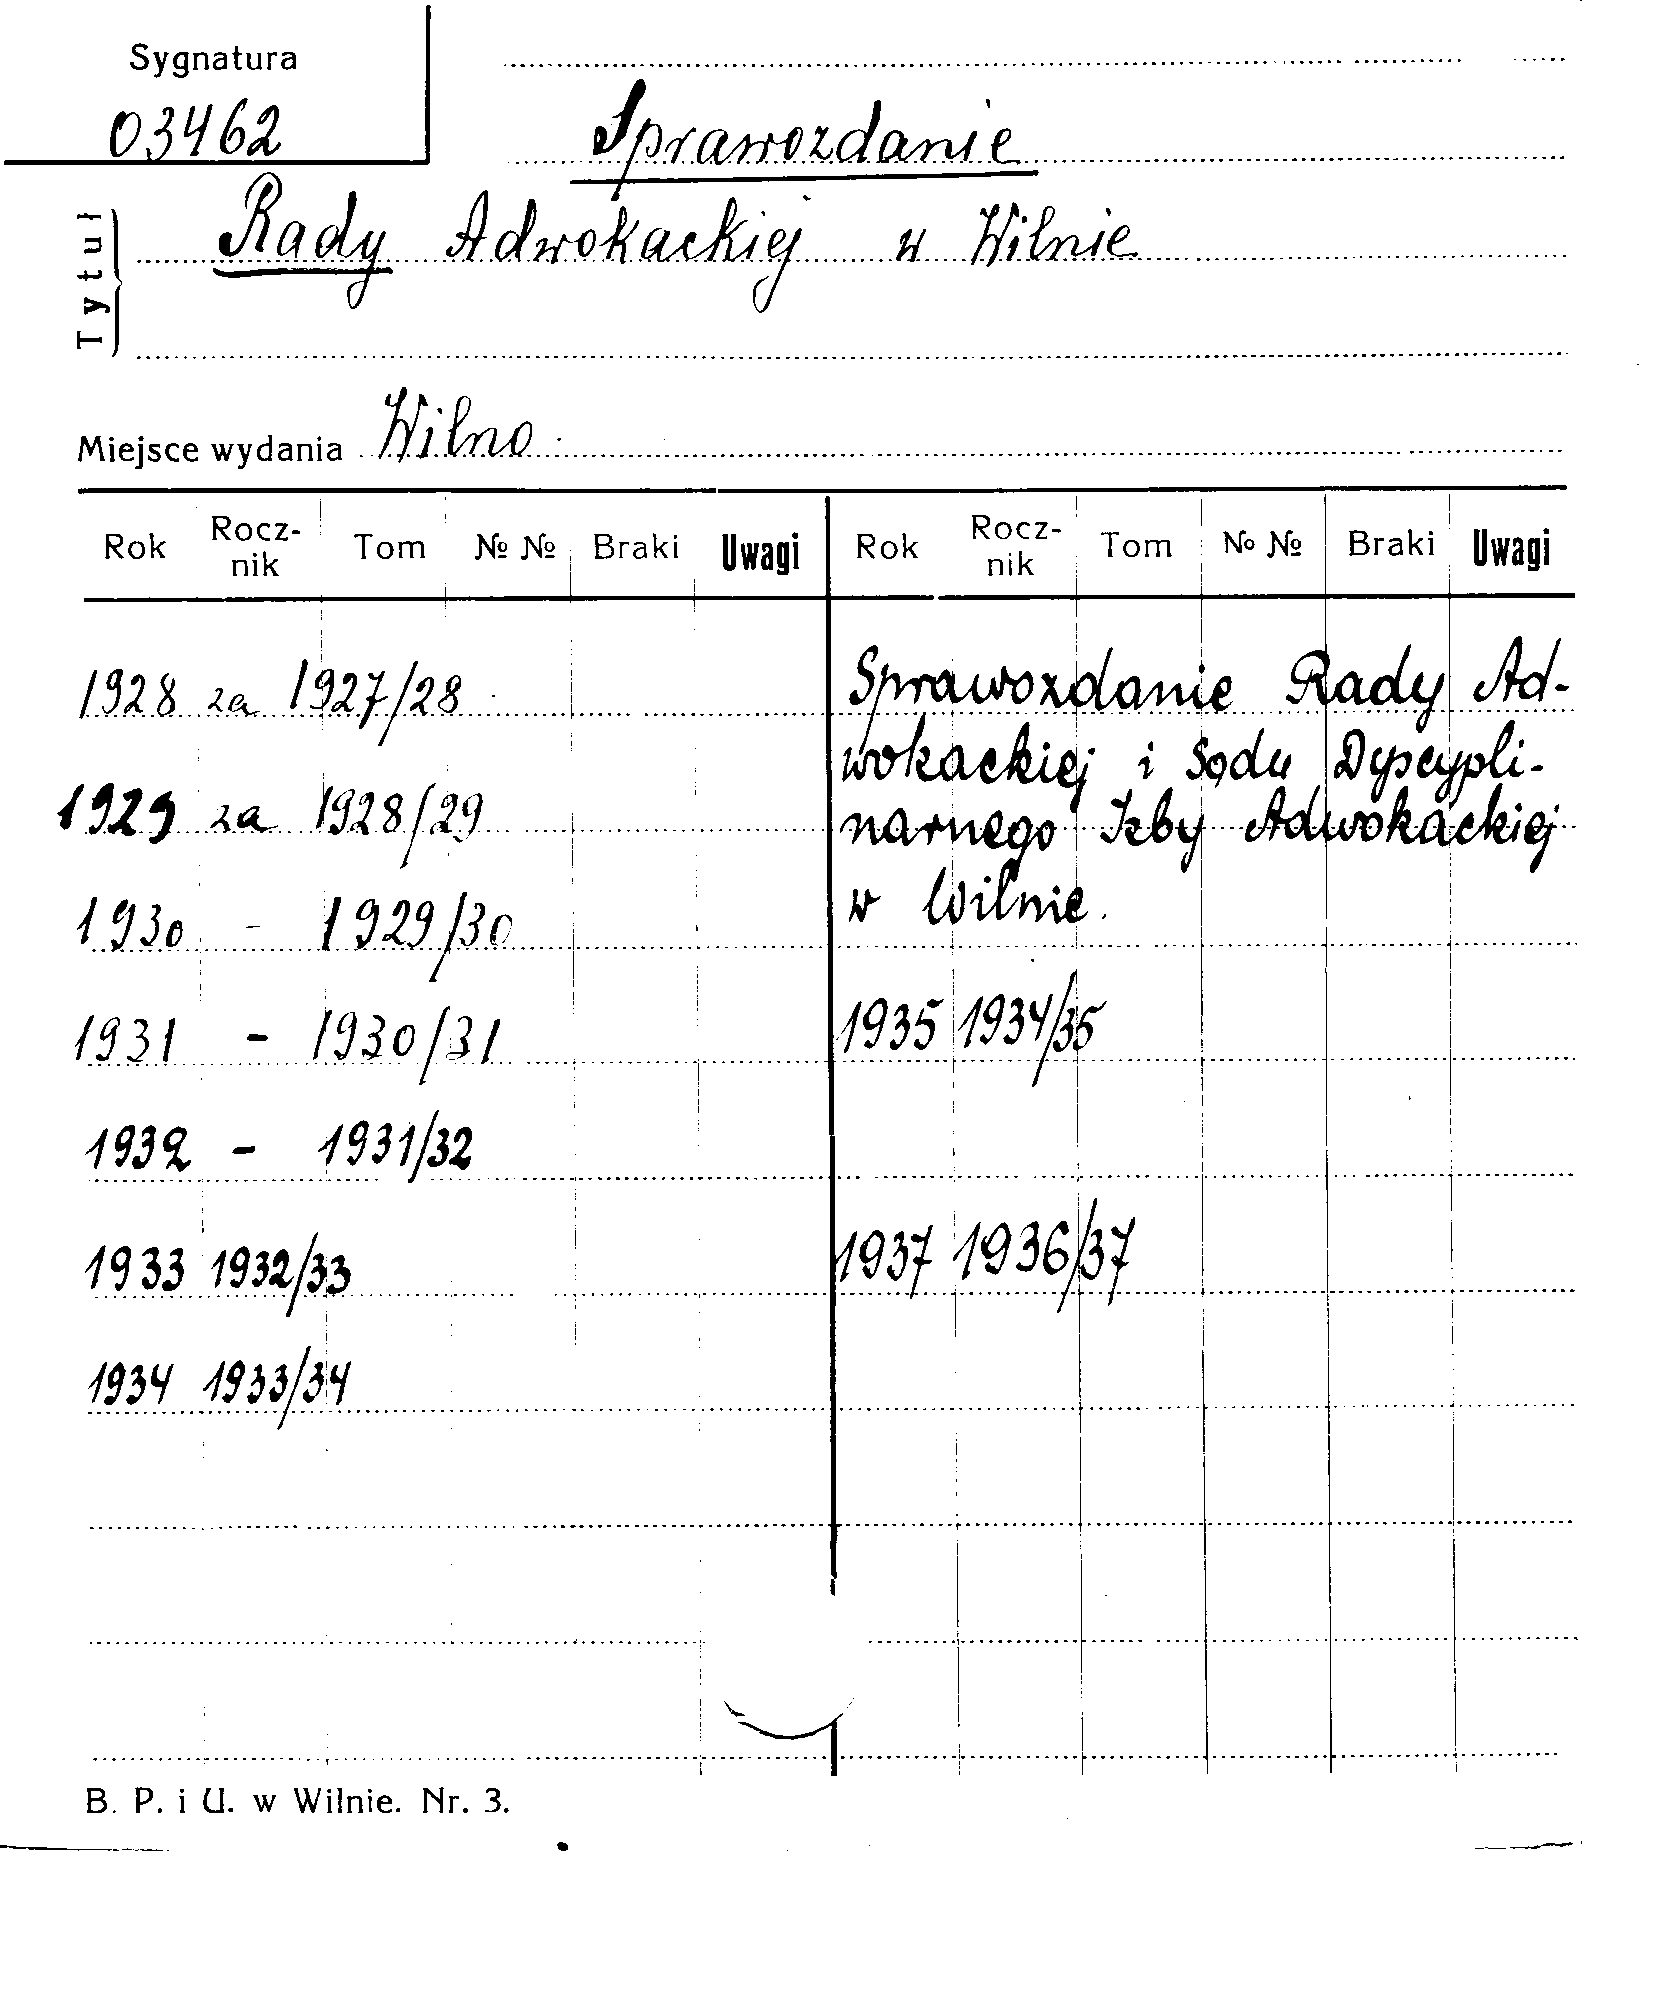 Sygnatura
03462
Sprawozdanie
Tytuł
Rady Adwokackiej w Wilnie
Miejsce wydania Wilno
Rok Rocz-nik Tom № № Braki Uwagi Rok Rocz-nik Tom № № Braki Uwagi
1928 za 1927/28
1929 za 1928/29
1930 - 1929/30
1931 - 1930/31
1932 - 1931/32
1933 1932/33
1934 1933/34
Sprawozdanie Rady Ad-
wokackiej i Sądu Dyscypli-
narnego Izby Adwokackiej
w Wilnie.
1935 1934/35
1937 1936/37
B. P. i U. w Wilnie. Nr. 3.